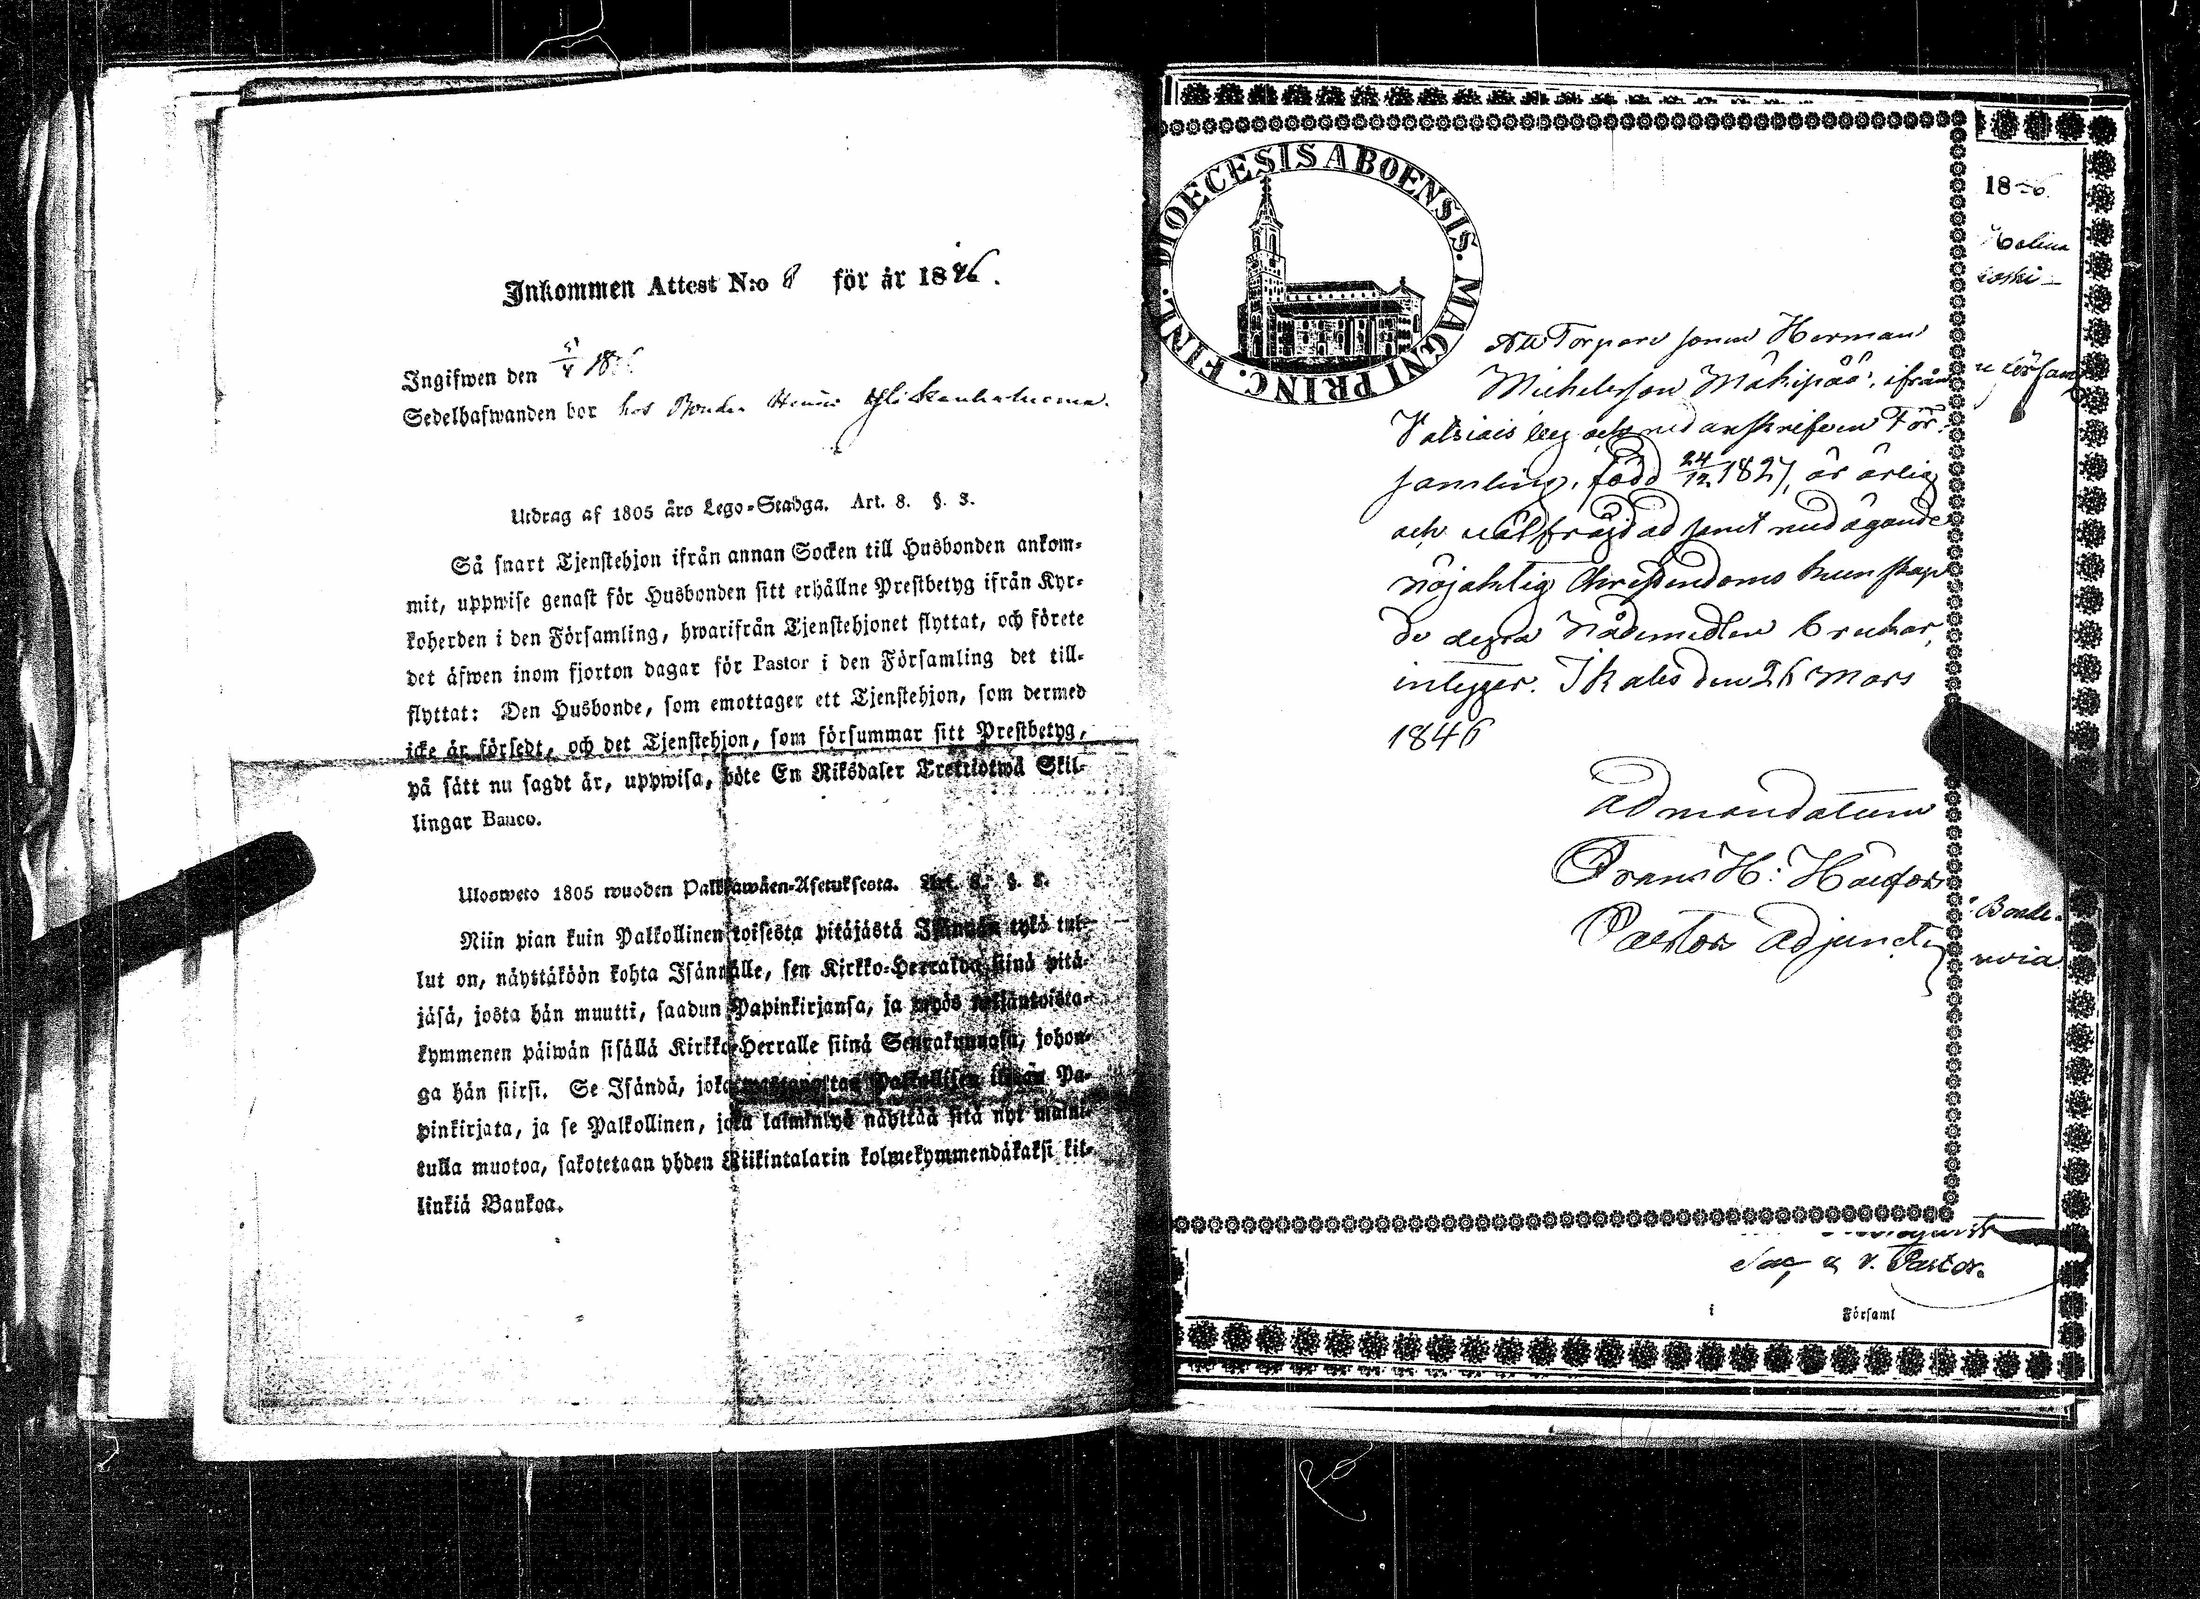 Inkommen Attest N:o 8 för år 1846.
Ingifwen den
Sedelhafwanden bor hos Bonden Henric
Utdrag af 1805 års Lego-Stadga. Art. 8. §. 3.
Så snart Tjenstehjon ifrån annan Socken till Husbonden ankom-
mit, uppwise genast för Husbonden sitt erhållne Prestbetyg ifrån Kyr-
koherden i den Församling, hwarifrån Tjenstehjonet flyttat, och förete
det äfwen inom fjorton dagar för Pastor i den Församling det till-
flyttat: Den Husbonde, som emottager ett Tjenstehjon, som dermed
icke är försedt, och det Tjenstehjon, som försummar sitt Prestbetyg,
på sätt nu sagdt är, uppwisa, böte En Riksdaler Trettiotwå Skil-
lingar Banco.
Ulosweto 1805 wuoden Palkkawäen-Asetuksesta. Art. 8. §. 3.
Niin pian kuin Palkollinen toisesta pitäjästä Isännän tykö tul-
lut on, näyttäköön kohta Isännälle, sen Kirkko-Herralda siinä pitä-
jäsä, josta hän muutti, saadun Papinkirjansa, ja myös neljäntoista-
kymmenen päiwän sisällä Kirkko-Herralle siinä Seurakunnasa, johon-
ga hän siirsi. Se Isändä, joka wastaanottaa Palkollisen ilman Pa-
pinkirjata, ja se Palkollinen, joka laiminlyö näyttää sitä nyt maini-
tulla muotoa, sakotetaan yhden Riikintalarin kolmekymmendäkaksi kil-
linkiä Bankoa.
DIOECESIS ABOENSIS. MAGNI PRINC. FINL.
Att Torpare sonen Herman
Michelsson Mäkipää, ifrån
och nedanskrifven För-
samling, född 24/12 1827, är ärlig
och välfräjdad samt med ägande
nöjaktig Christendoms kunskap
de dyra Nådemedlen brukar,
intygar. Ikalis den 26 Mars
1846
Ad mandatum
Frans H:
Pastors Adjunct
18
Bonde-
v. Pastor.
i Församl